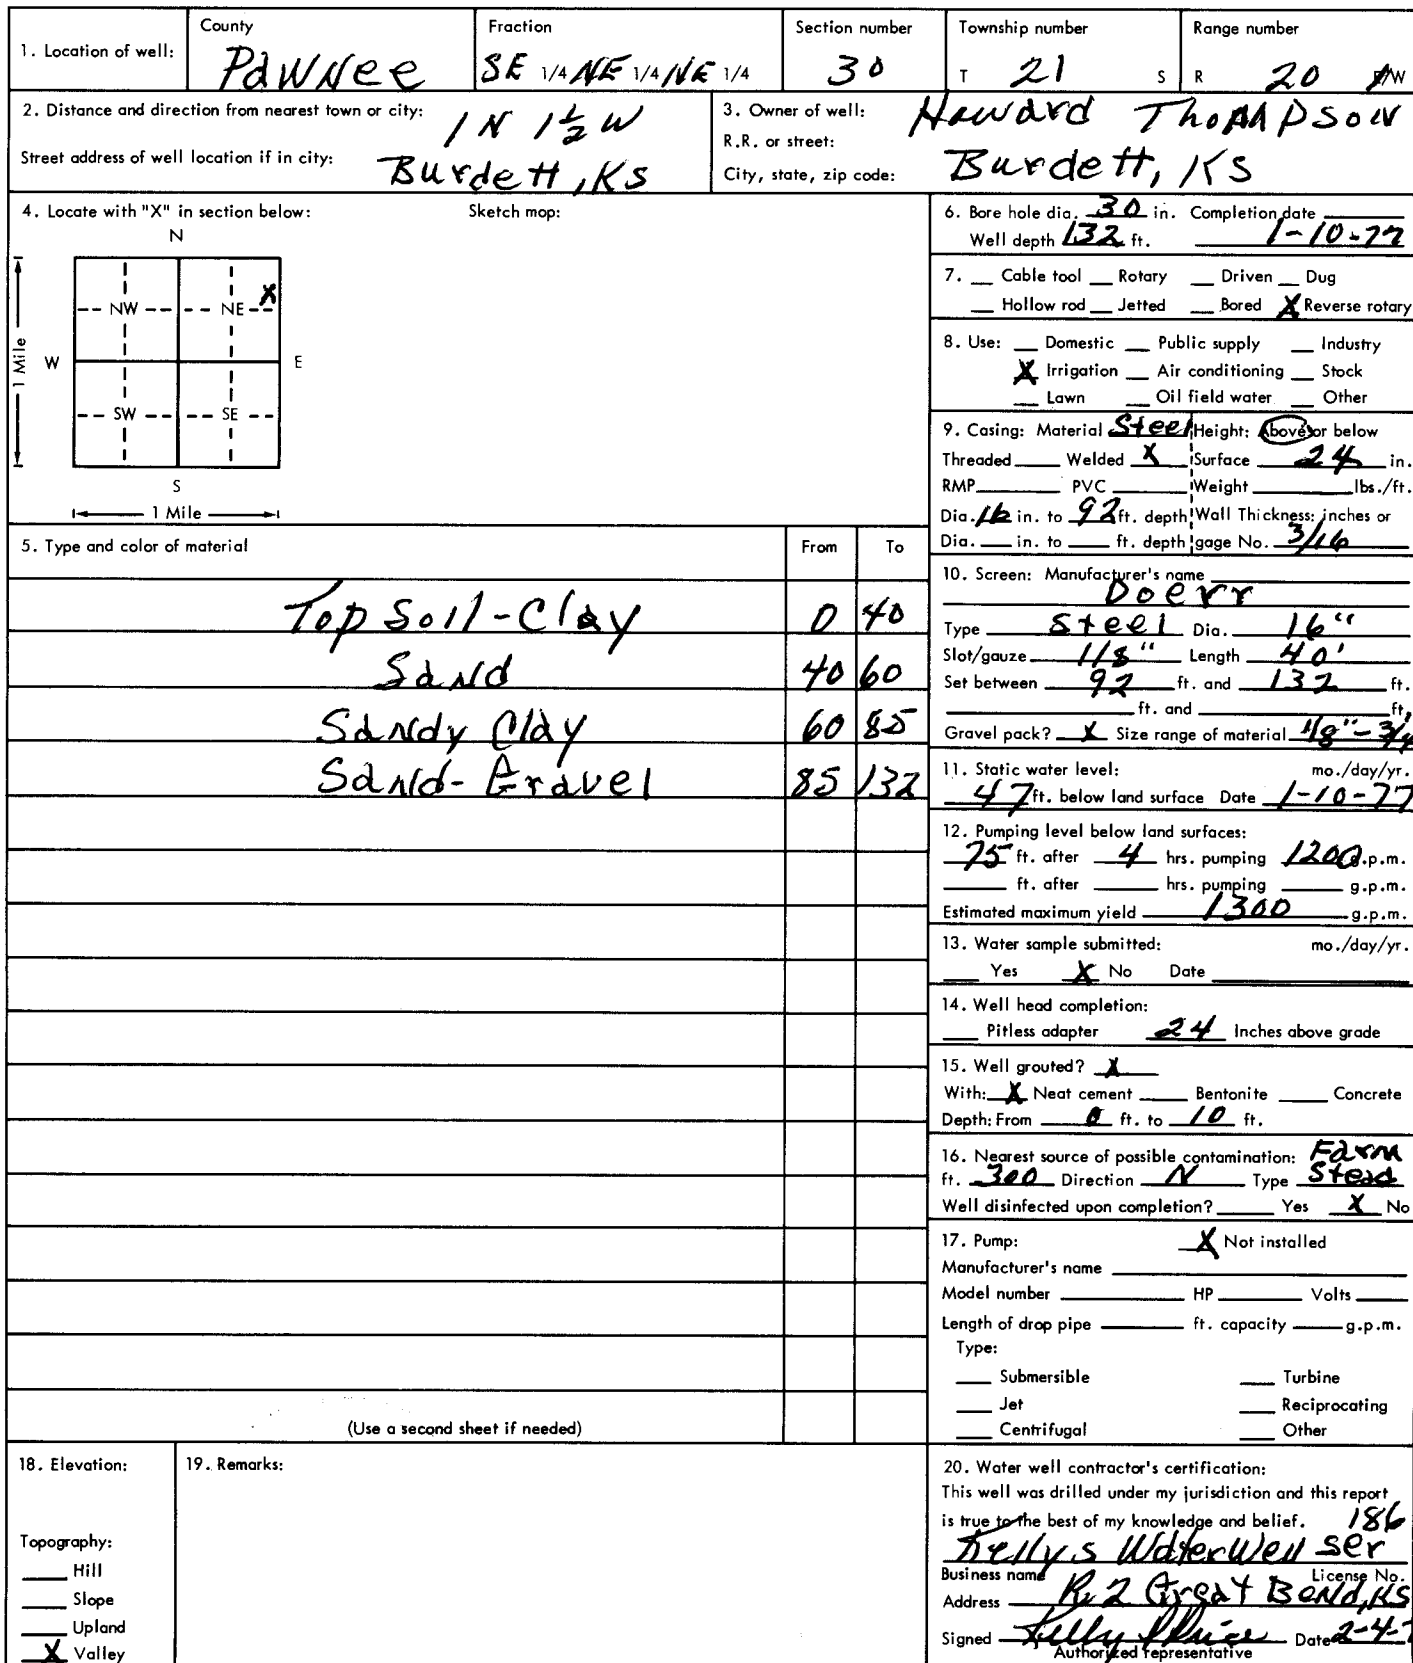 1. Location of well: County Pawnee Fraction SE 1/4 NE 1/4 NE 1/4 Section number 30 Township number T 21 S Range number R 20 E/W
2. Distance and direction from nearest town or city: 1 N 1½ W
Street address of well location if in city: Burdett, KS
3. Owner of well: Howard Thompson
R.R. or street:
City, state, zip code: Burdett, KS
4. Locate with "X" in section below: Sketch map:
N
NW NE X
W E
1 Mile
SW SE
S
1 Mile
5. Type and color of material From To
Top Soil-Clay 0 40
Sand 40 60
Sandy Clay 60 85
Sand-Gravel 85 132
(Use a second sheet if needed)
6. Bore hole dia. 30 in. Completion date
Well depth 132 ft. 1-10-77
7. __ Cable tool __ Rotary __ Driven __ Dug
__ Hollow rod __ Jetted __ Bored X Reverse rotary
8. Use: __ Domestic __ Public supply __ Industry
X Irrigation __ Air conditioning __ Stock
__ Lawn __ Oil field water __ Other
9. Casing: Material Steel Height: Above or below
Threaded ____ Welded X Surface 24 in.
RMP ____ PVC ____ Weight ____ lbs./ft.
Dia. 16 in. to 92 ft. depth Wall Thickness: inches or
Dia. __ in. to __ ft. depth gage No. 3/16
10. Screen: Manufacturer's name
Doerr
Type Steel Dia. 16"
Slot/gauze 1/8" Length 40'
Set between 92 ft. and 132 ft.
____ ft. and ____ ft.
Gravel pack? X Size range of material 1/8"-3/4
11. Static water level: mo./day/yr.
47 ft. below land surface Date 1-10-77
12. Pumping level below land surfaces:
75 ft. after 4 hrs. pumping 1200 g.p.m.
____ ft. after ____ hrs. pumping ____ g.p.m.
Estimated maximum yield 1300 g.p.m.
13. Water sample submitted: mo./day/yr.
__ Yes X No Date ____
14. Well head completion:
__ Pitless adapter 24 Inches above grade
15. Well grouted? X
With: X Neat cement ____ Bentonite ____ Concrete
Depth: From 0 ft. to 10 ft.
16. Nearest source of possible contamination: Farm
ft. 300 Direction N Type Stead
Well disinfected upon completion? ____ Yes X No
17. Pump: X Not installed
Manufacturer's name ____
Model number ____ HP ____ Volts ____
Length of drop pipe ____ ft. capacity ____ g.p.m.
Type:
__ Submersible __ Turbine
__ Jet __ Reciprocating
__ Centrifugal __ Other
18. Elevation:
Topography:
__ Hill
__ Slope
__ Upland
X Valley
19. Remarks:
20. Water well contractor's certification:
This well was drilled under my jurisdiction and this report
is true to the best of my knowledge and belief. 186
Kellys Water Well Ser
Business name License No.
Address R. 2 Great Bend, KS
Signed Kelly Price Date 2-4-7
Authorized representative